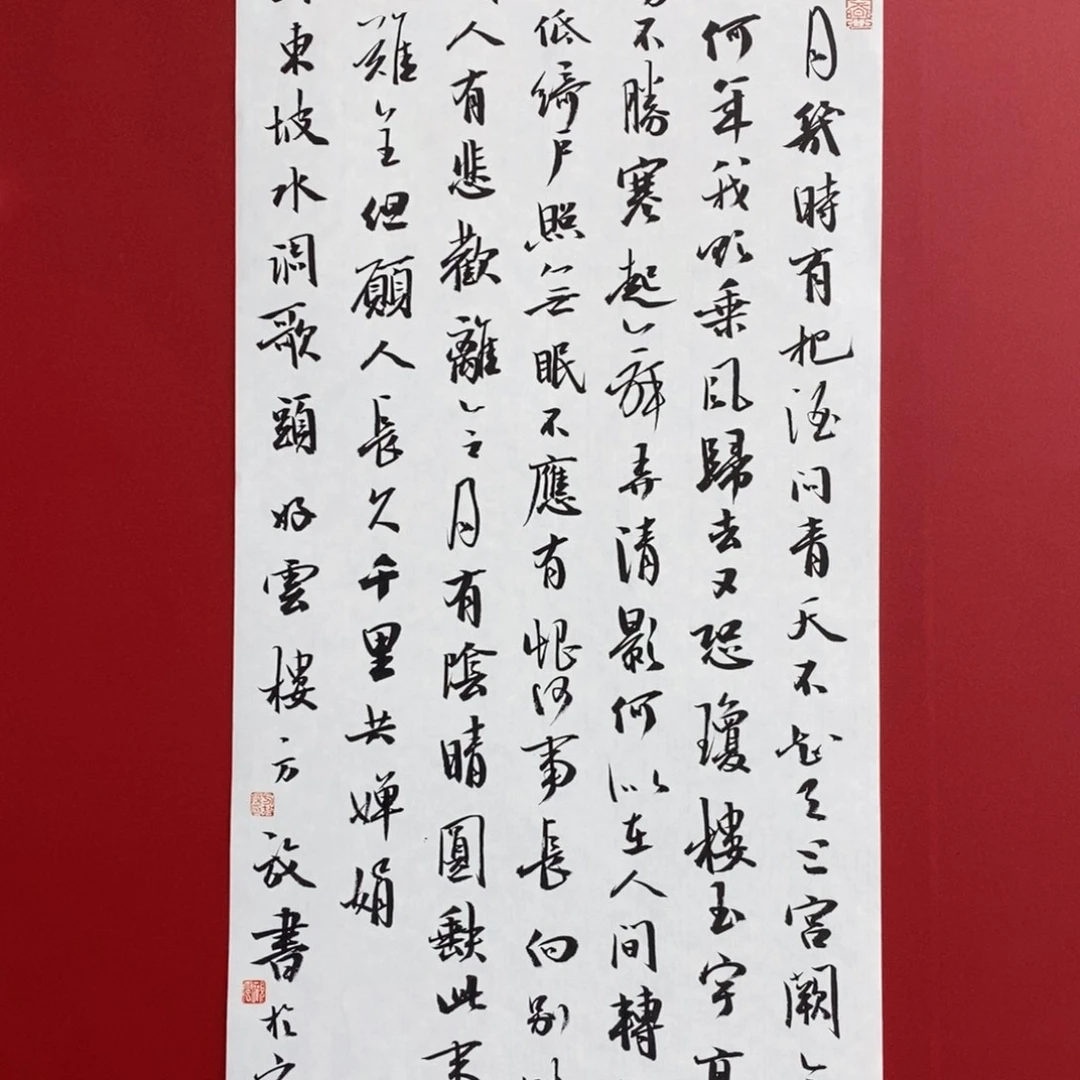 月幾時有把酒問青天不知天上宮闕
何年我欲乘風歸去又恐瓊樓玉宇高
不勝寒起舞弄清影何似在人間轉
低綺戶照無眠不應有恨何事長向別
人有悲歡離合月有陰晴圓缺此事
難全但願人長久千里共嬋娟
東坡水調歌頭 好雲樓 方 書於